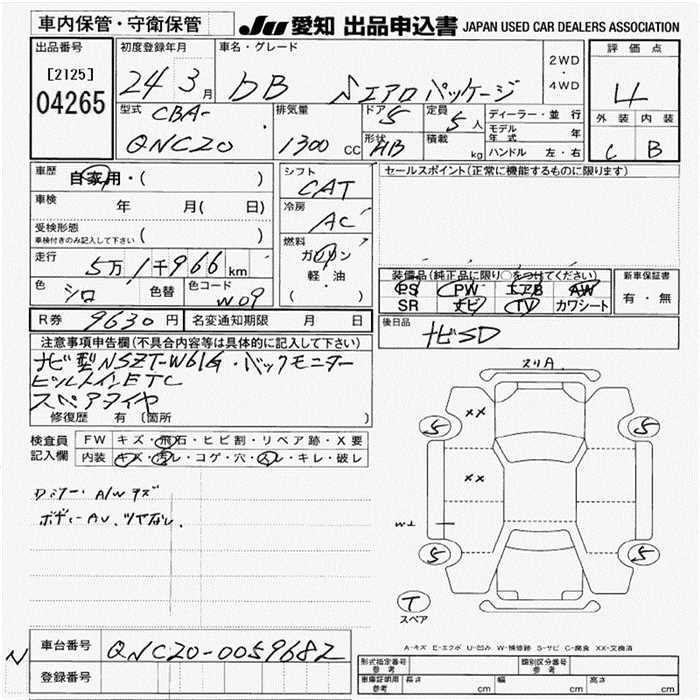 車内保管・守衛保管
JU 愛知 出品申込書 JAPAN USED CAR DEALERS ASSOCIATION
出品番号 初度登録年月 車名・グレード 2WD・4WD 評価点
[2125] 24年3月 bB Sエアロパッケージ 4
04265
型式 排気量 ドア 定員 ディーラー・並行 外装 内装
CBA-QNC20 1300CC 5 5人 モデル年式 年 C B
形状 HB 積載 kg ハンドル 左・右
車歴 自家用・( ) シフト CAT セールスポイント(正常に機能するものに限ります)
車検 年 月( 日) 冷房 AC
受検形態 車検付きのみ記入して下さい ( )
走行 5万1千966km 燃料 ガソリン 軽・油 ( )
装備品(純正品に限り○をつけてください) 新車保証書
色 シロ 色替 色コード W09 PS PW エアB AW 有・無
SR ナビ TV カワシート
R券 9630円 名変通知期限 月 日 後日品 ナビSD
注意事項申告欄(不具合内容等は具体的に記入して下さい)
ナビ型NSZT-W61G・バックモニター
ビルトインETC
スペアタイヤ
修復歴 有(箇所 )
スリA
検査員記入欄 FW キズ・飛石・ヒビ割・リペア跡・X要
内装 キズ・汚レ・コゲ・穴・スレ・キレ・破レ
××
5 5
××
Dミラー・A/Wキズ
ボディーAU、ツヤなし、
5 5
T
スペア
A-キズ E-エクボ U-凹み W-補修跡 S-サビ C-腐食 XX-交換済
N 車台番号 QNC20-0059682
登録番号
形式指定番号 参考 類別区分番号 参考
車庫証明用 参考 長さ cm 幅 cm 高さ cm